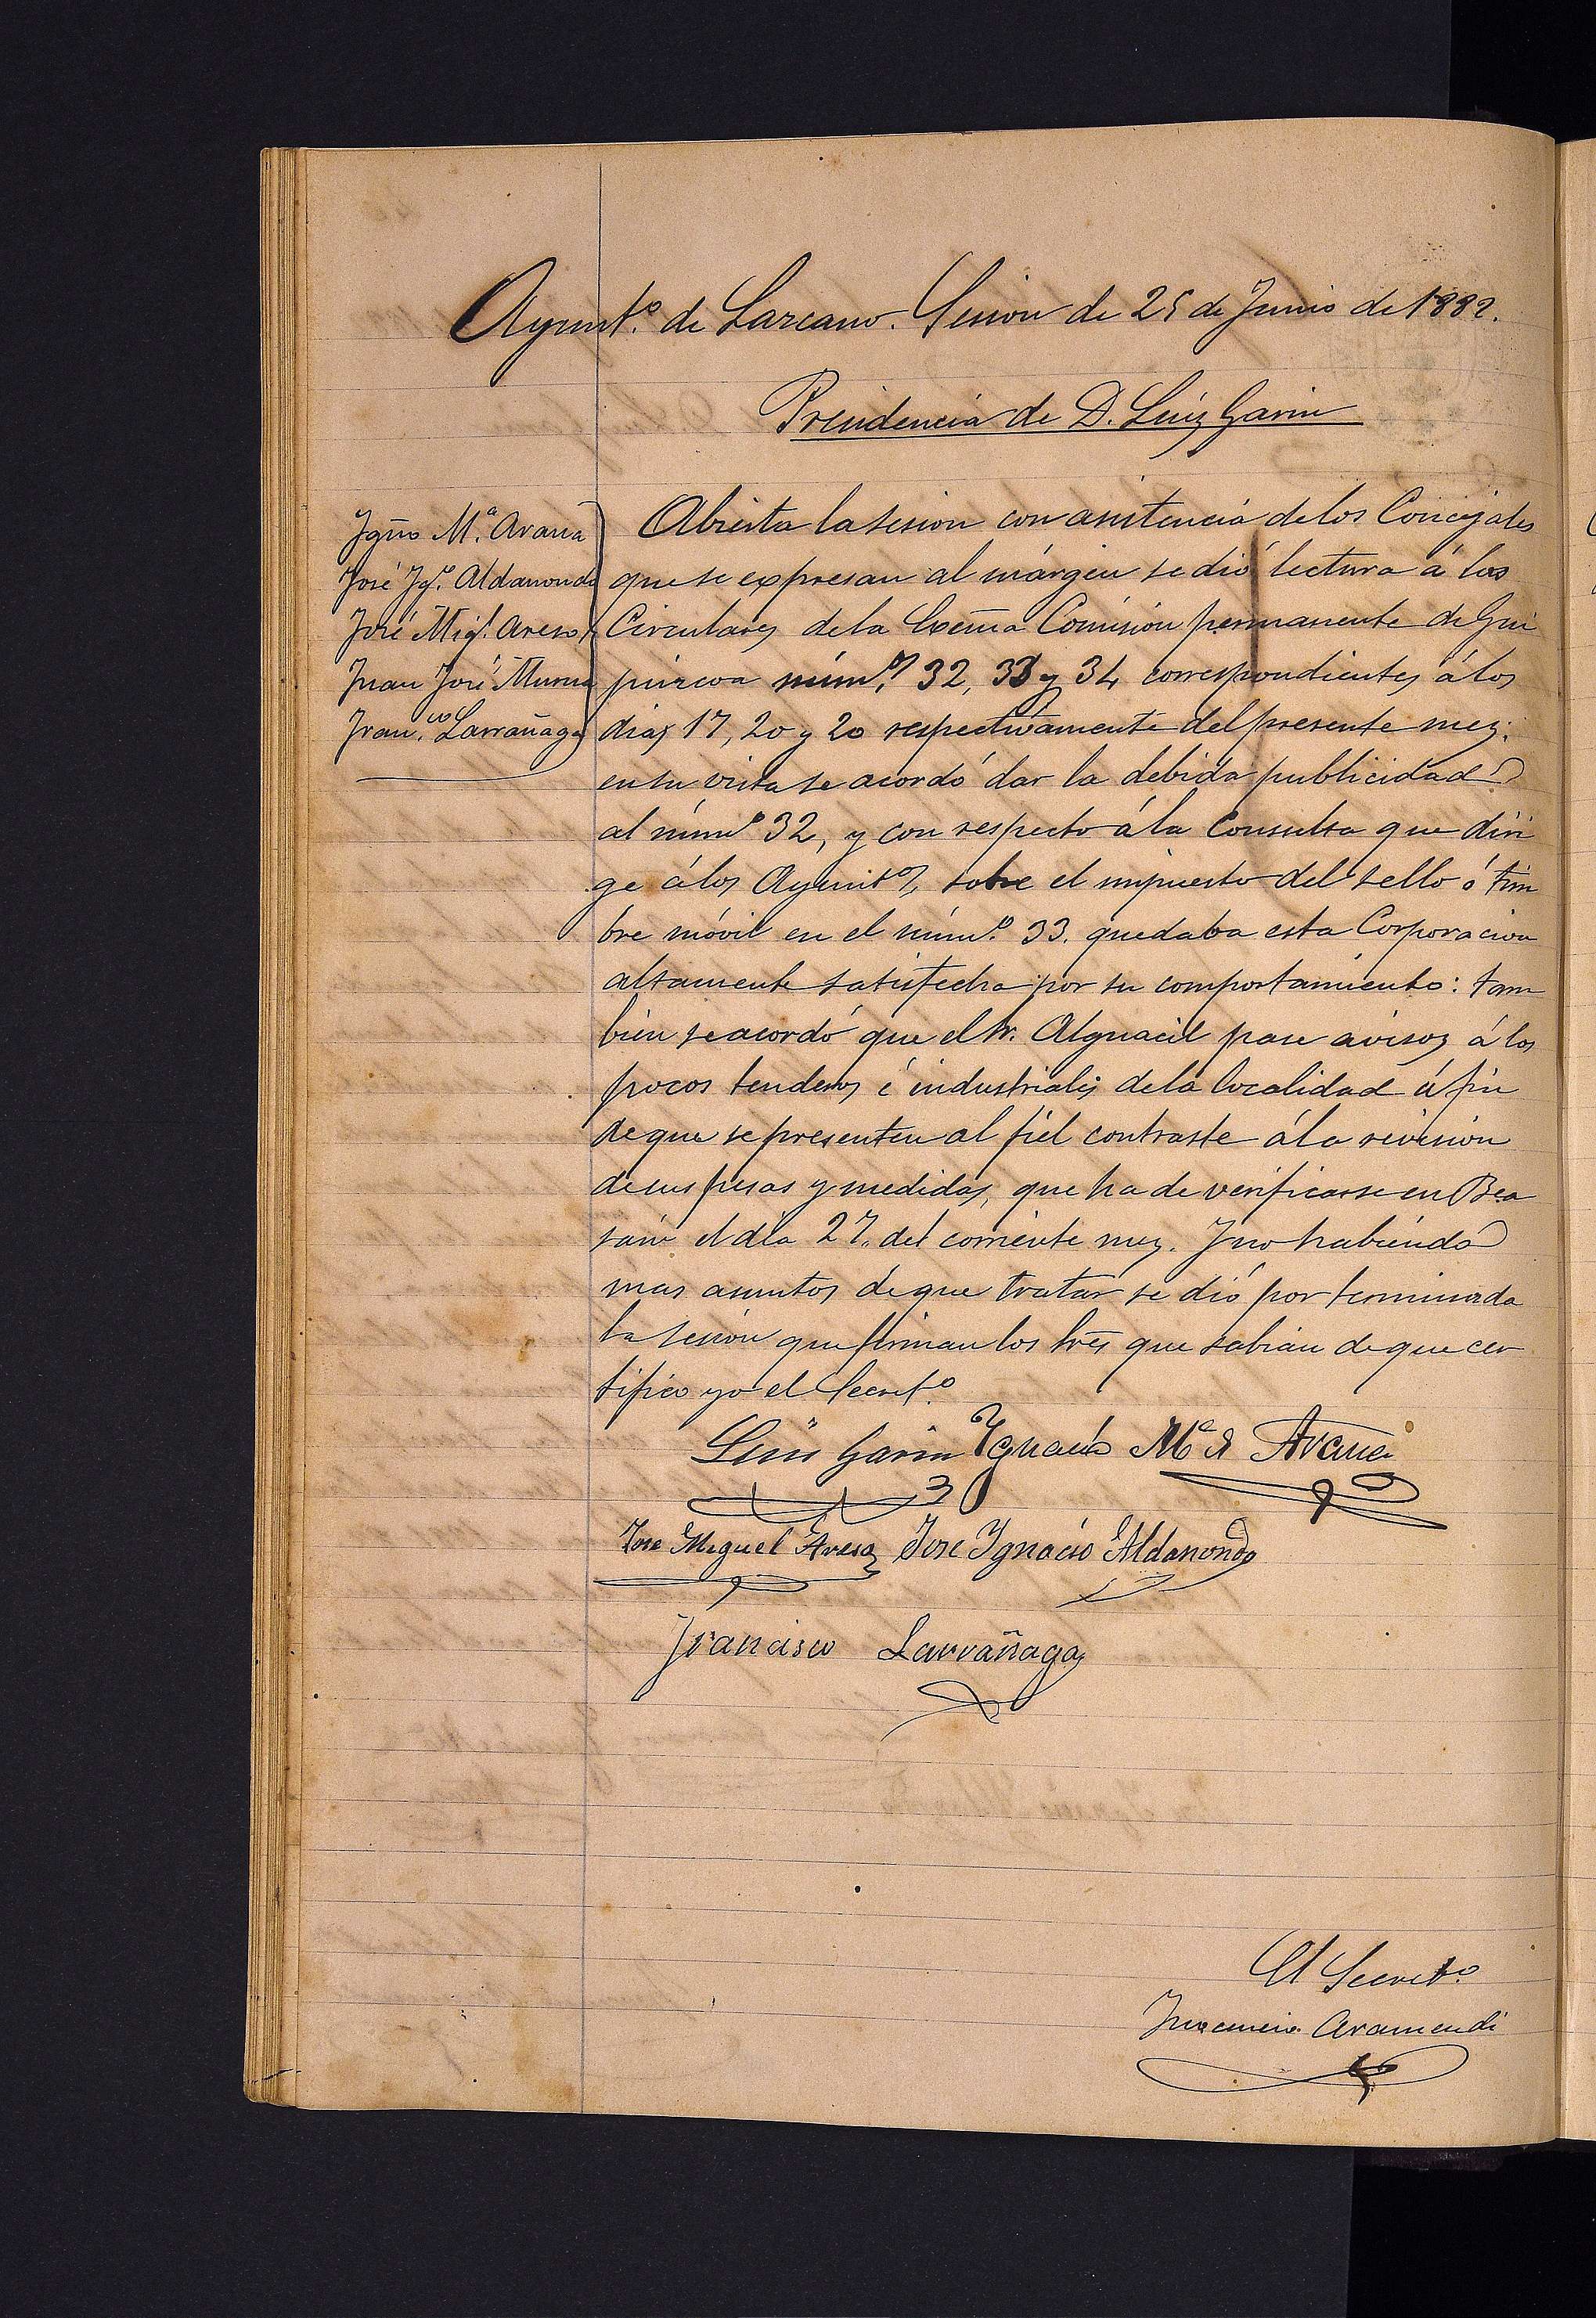 Ayunt.º de Lazcano. Sesion de 25 de Junio de 1882.
Presidencia de D. Luiz Garin
Ygño M.ª Arana
José Yg.º Aldanondo
José Mig.l Areso
Juan José Murua
Fran.co Larrañaga
Abierta la sesion con asistencia de los Concejales
que se expresan al márgen se dió lectura á las
Circulares de la Exc̃ma Comision permanente de Gui
púzcoa núm.s 32, 33 y 34 correspondientes á los
dias 17, 20 y 20 respectivamente del presente mez:
en su vista se acordó dar la debida publicidad
al núm.º 32, y con respecto á la Consulta que diri
ge á los Ayunt.os, sobre el impuesto del sello ó tim
bre móvil en el núm.º 33. quedaba esta Corporacion
altamente satisfecha por su comportamiento: tam
bien se acordó que el Sr. Alguacil pase avisos á los
pocos tenderos é industriales de la localidad á fin
de que se presenten al fiel contraste á la revision
de sus pesas y medidas, que ha de verificarse en Bea
sain el dia 27. del corriente mez. Y no habiendo
mas asuntos de que tratar se dió por terminada
la sesion que firman los Srẽs que sabian de que cer
tifico yo el Secret.º
Luis Garin Ygnacio Mª d Arana
Jose Miguel Areso Jose Ygnacio Aldanondo
Francisco Larrañaga
El Secret.º
Aramendi